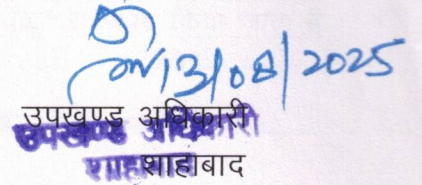 13/08/2025
उपखण्ड अधिकारी
उपखण्ड अधिकारी
शाहाबाद
शाहाबाद